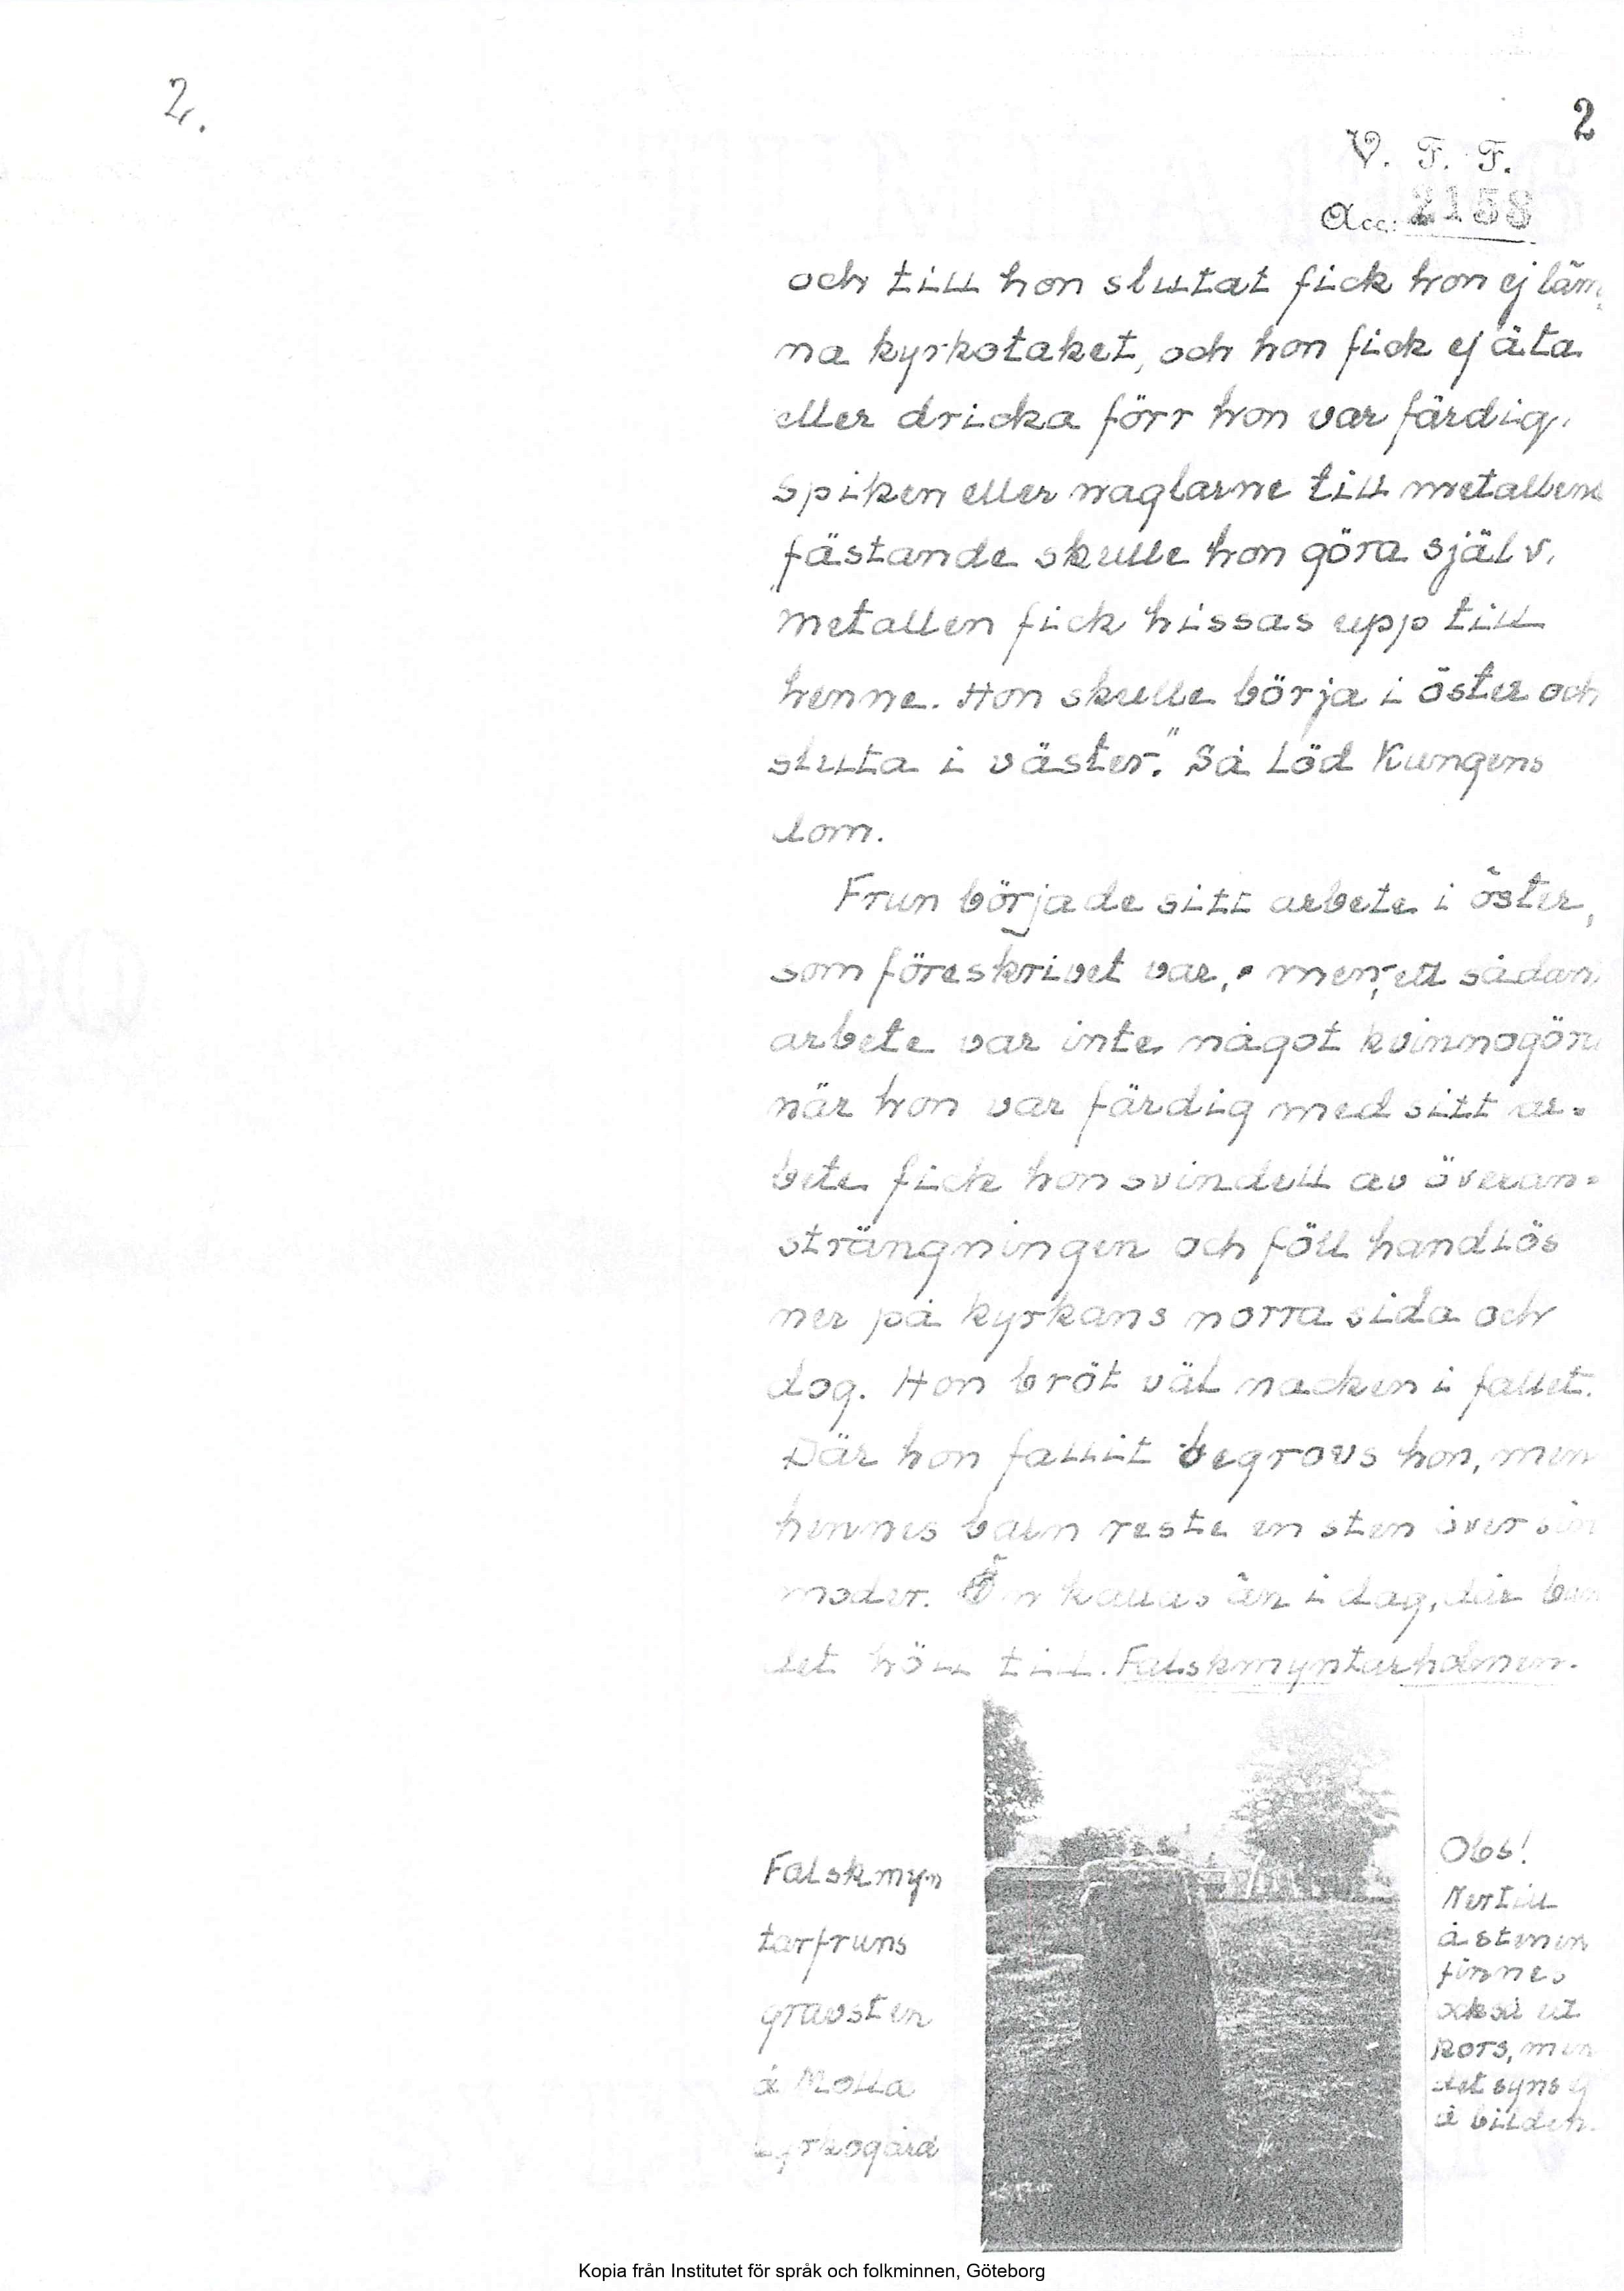 2.
2
V. F. F.
Acc: 2158
och till hon slutat fick hon ej läm
na kyrkotaket, och hon fick ej äta
eller dricka förr hon var färdig.
Spiken eller naglarne till metallens
fästande skulle hon göra själv.
Metallen fick hissas upp till
henne. Hon skulle börja i öster och
sluta i väster." Så löd Kungens
dom.
Frun började sitt arbete i öster,
som föreskrivet var, men, ett sådant
arbete var inte något kvinnogöra
när hon var färdig med sitt ar-
bete fick hon svindell av överan-
strängningen och föll handlös
ner på kyrkans norra sida och
dog. Hon bröt väl nacken i fallet.
Där hon fallit begrovs hon, men
hennes barn reste en sten över sin
moder. Ön kallas än i dag, där ban
det höll till. Falskmyntarholmen.
Falskmyn
tarfruns
gravsten
å Molla
kyrkogård
Obs!
Nertill
å stenen
finnes
också ett
kors, men
det syns ej
å bilden.
Kopia från Institutet för språk och folkminnen, Göteborg